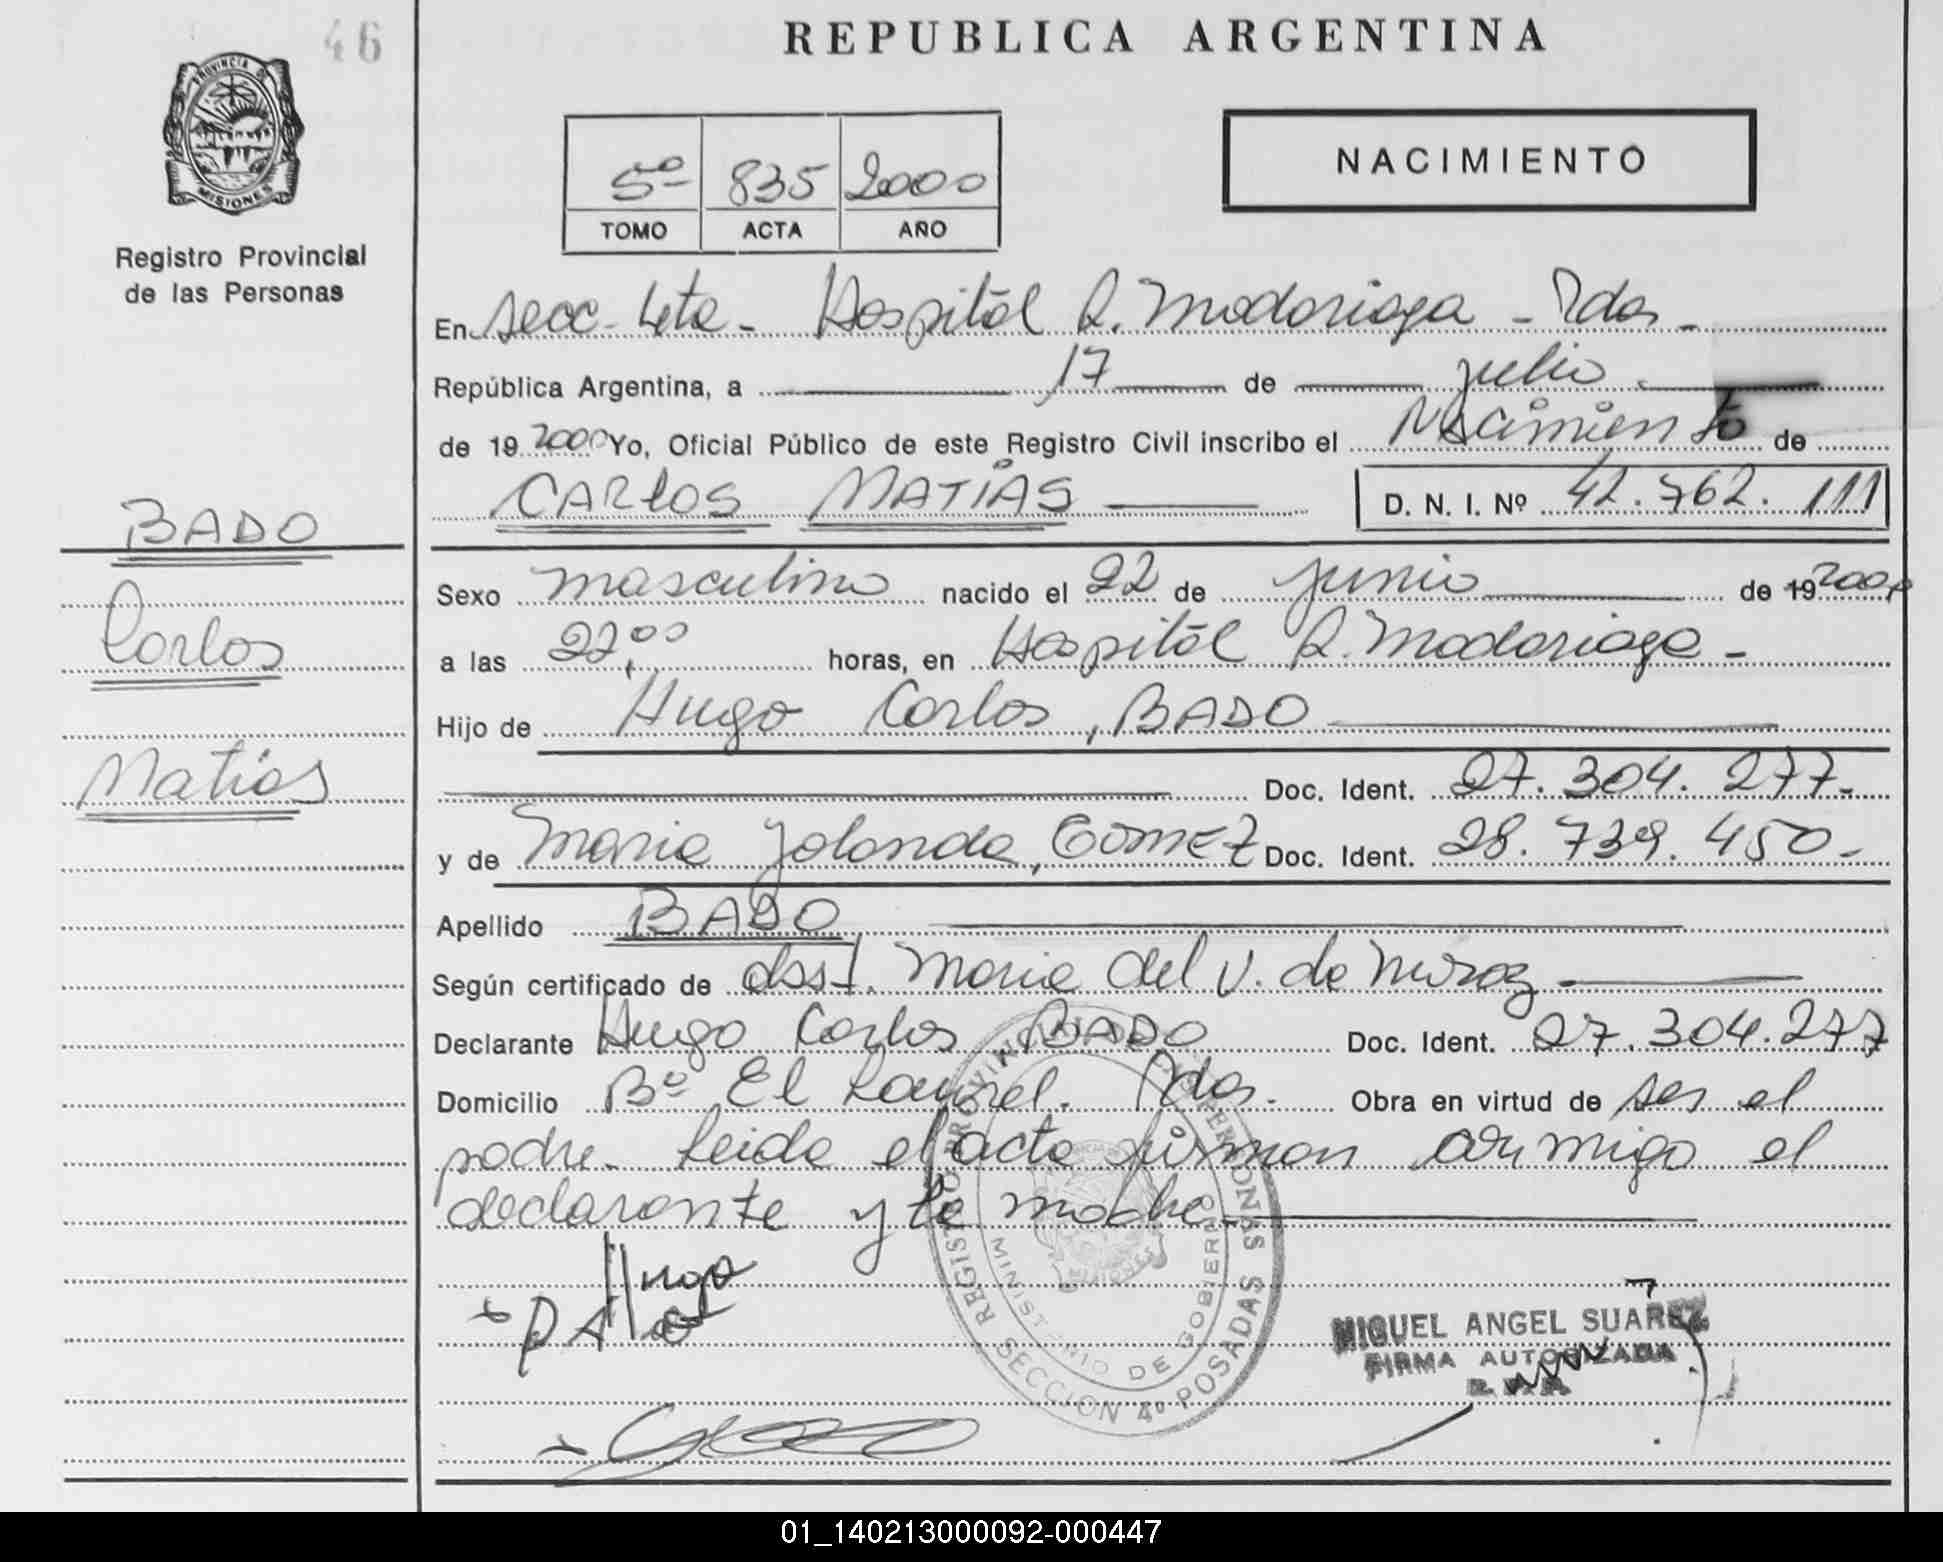 46
REPUBLICA ARGENTINA
PROVINCIA DE
MISIONES
Registro Provincial
de las Personas
5º 835 2000
TOMO ACTA AÑO
NACIMIENTO
En secc. 4ta - Hospital R. Madariaga - Pdas -
República Argentina, a 17 de julio
de 19 2000 Yo, Oficial Público de este Registro Civil inscribo el Nacimiento de
CARLOS MATIAS D. N. I. Nº 42.762.111
BADO
Carlos
Matias
Sexo masculino nacido el 22 de junio de 19 2000
a las 22,00 horas, en Hospital R. Madariaga -
Hijo de Hugo Carlos, BADO
Doc. Ident. 27.304.277-
y de Maria Yolanda, GOMEZ Doc. Ident. 28.739.450-
Apellido BADO
Según certificado de obst. Maria del V. de
Declarante Hugo Carlos BADO Doc. Ident. 27.304.277
Domicilio Bº El Laurel. Pdas. Obra en virtud de ser el
padre. Leida el acta firman conmigo el
declarante y la madre.
Hugo
REGISTRO PROVINCIAL DE LAS PERSONAS
MINISTERIO DE GOBIERNO
SECCION 4º POSADAS
MIGUEL ANGEL SUAREZ
FIRMA AUTORIZADA
R. P. P.
01_140213000092-000447